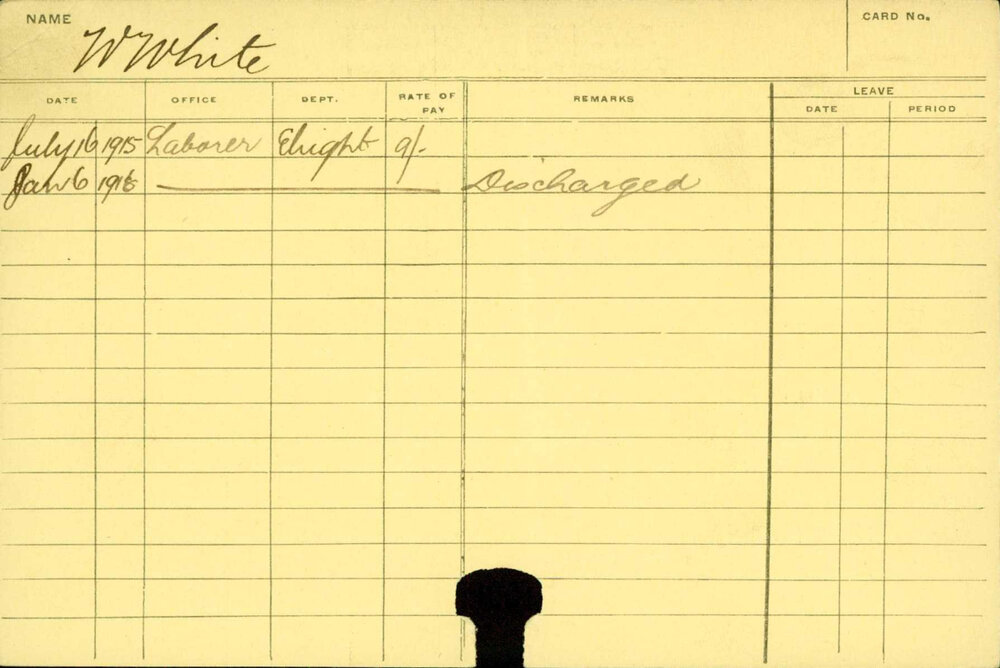 NAME
W White
CARD No.
DATE OFFICE DEPT. RATE OF PAY REMARKS LEAVE
DATE PERIOD
July 16 1915 Laborer Elight 9/-
Jan 6 1916 Discharged